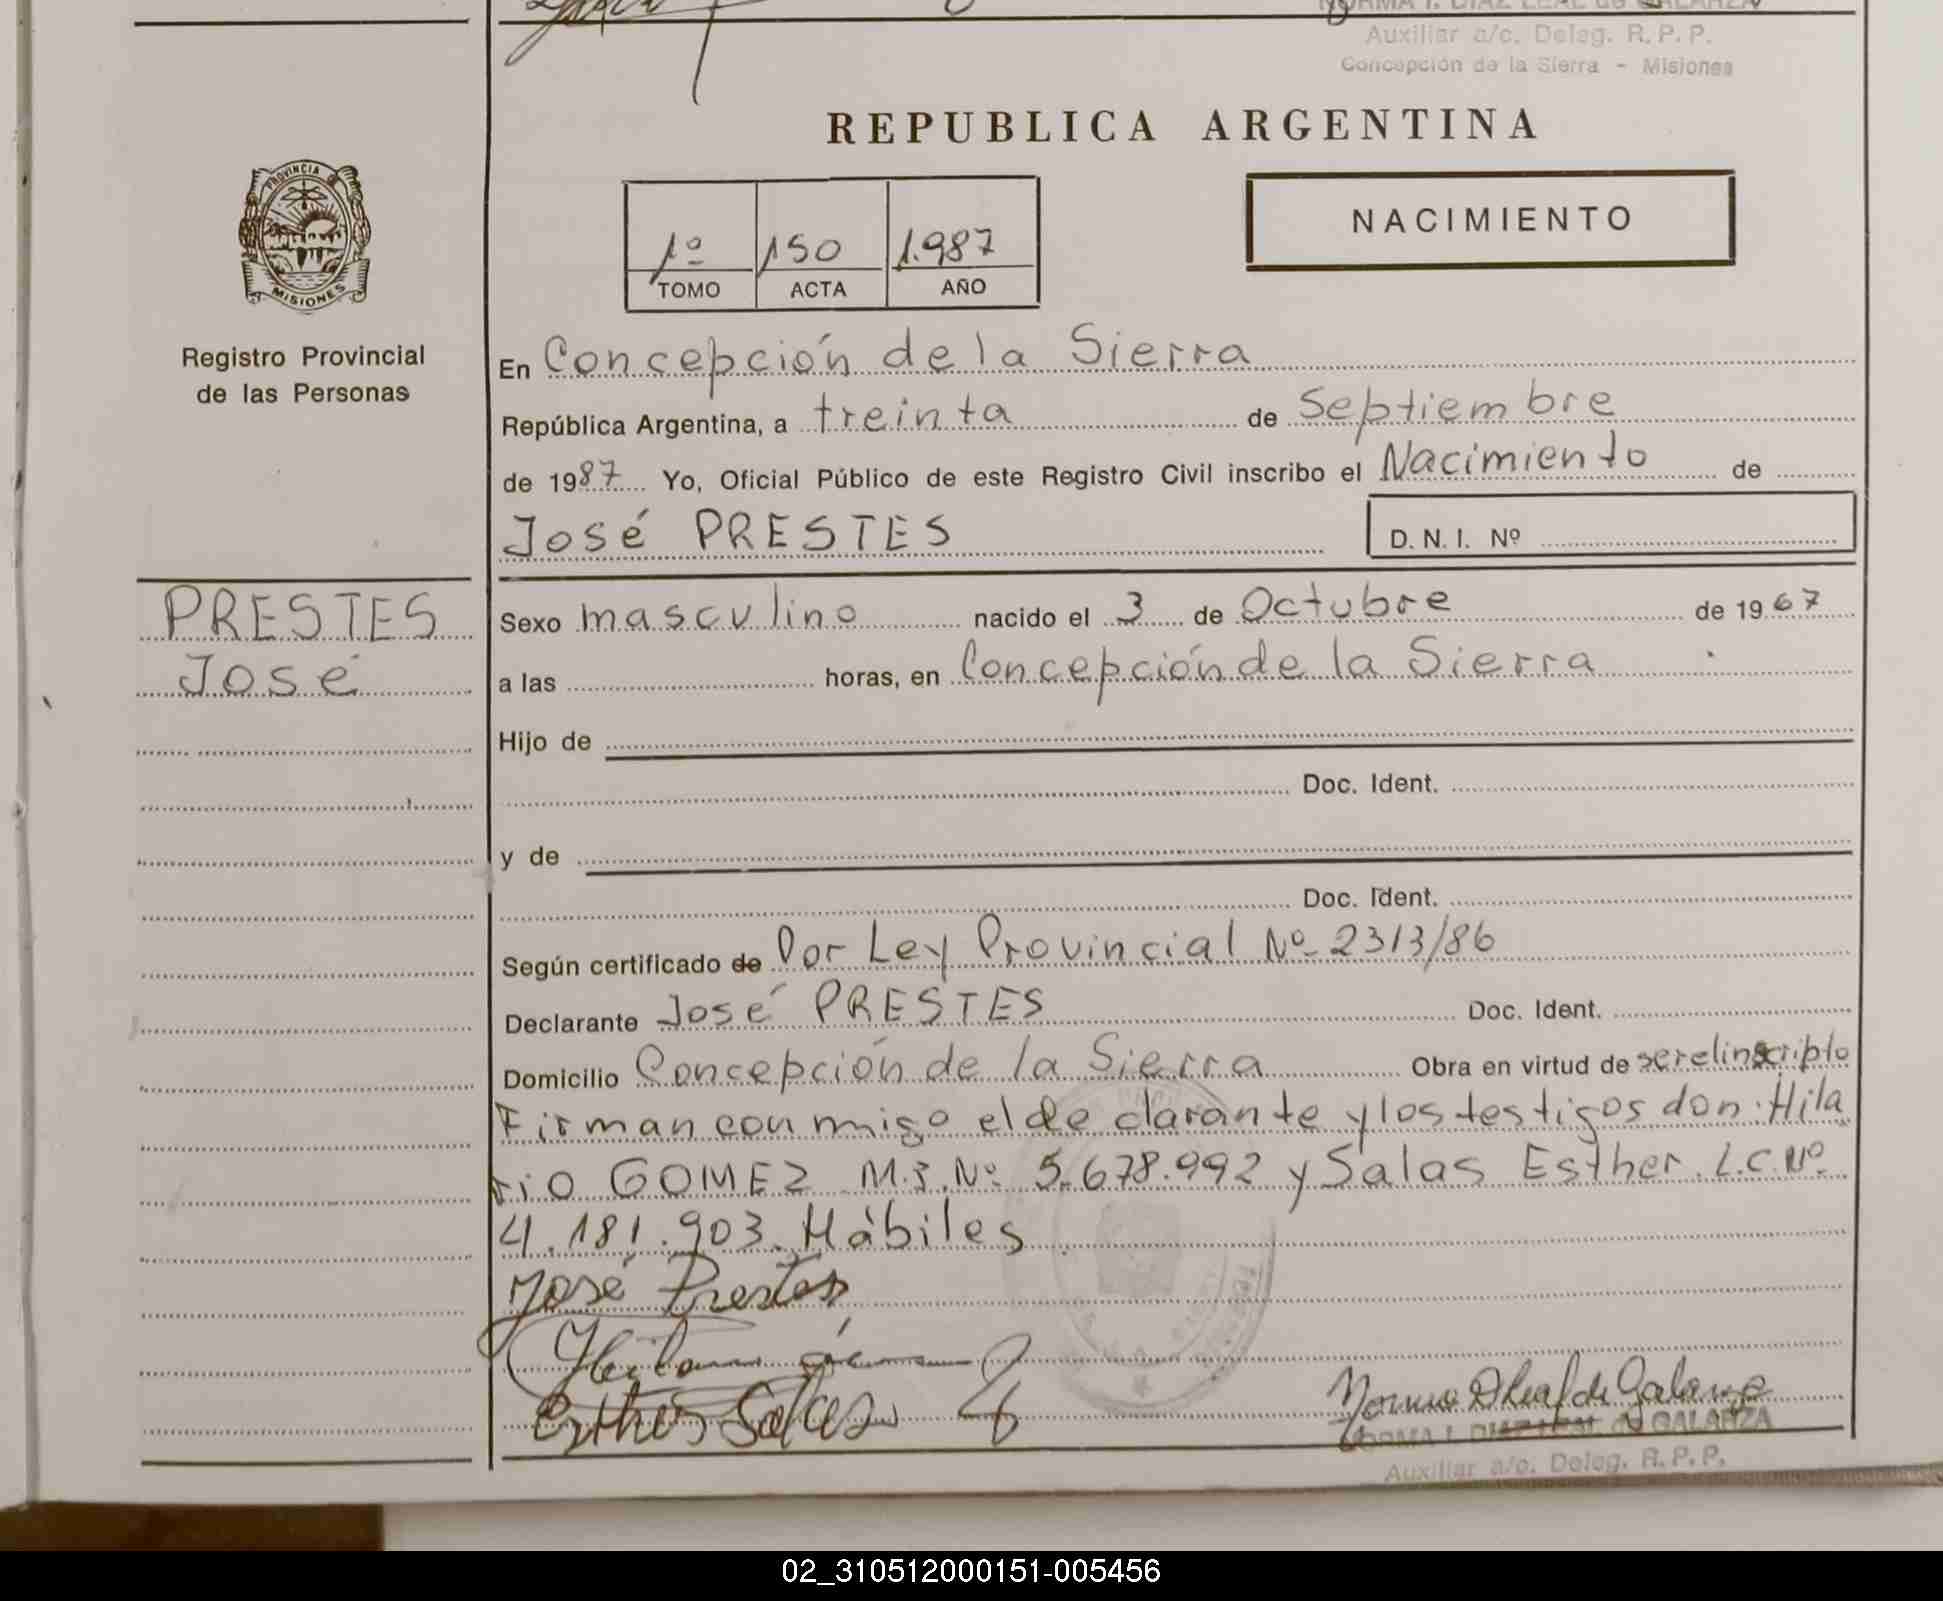 NORMA I. DIAZ LEAL de GALARZA
Auxiliar a/c. Deleg. R. P. P.
Concepción de la Sierra - Misiones
REPUBLICA ARGENTINA
PROVINCIA
MISIONES
Registro Provincial
de las Personas
1º 150 1.987
TOMO ACTA AÑO
NACIMIENTO
En Concepción de la Sierra
República Argentina, a treinta de Septiembre
de 1987 Yo, Oficial Público de este Registro Civil inscribo el Nacimiento de
José PRESTES D. N. I. Nº
PRESTES
José
Sexo masculino nacido el 3 de Octubre de 1967
a las horas, en Concepción de la Sierra
Hijo de
Doc. Ident.
y de
Doc. Ident.
Según certificado de Por Ley Provincial Nº 2313/86
Declarante José PRESTES Doc. Ident.
Domicilio Concepción de la Sierra Obra en virtud de ser el inscripto
Firman con migo el de clarante y los testigos don: Hila
rio GOMEZ M.I. Nº 5.678.992 y Salas Esther. L.C. Nº
4.181.903. Hábiles
José Prestes
Esther Salas
Norma D Leal de Galarza
NORMA I. DIAZ LEAL de GALARZA
Auxiliar a/c. Deleg. R. P. P.
02_310512000151-005456